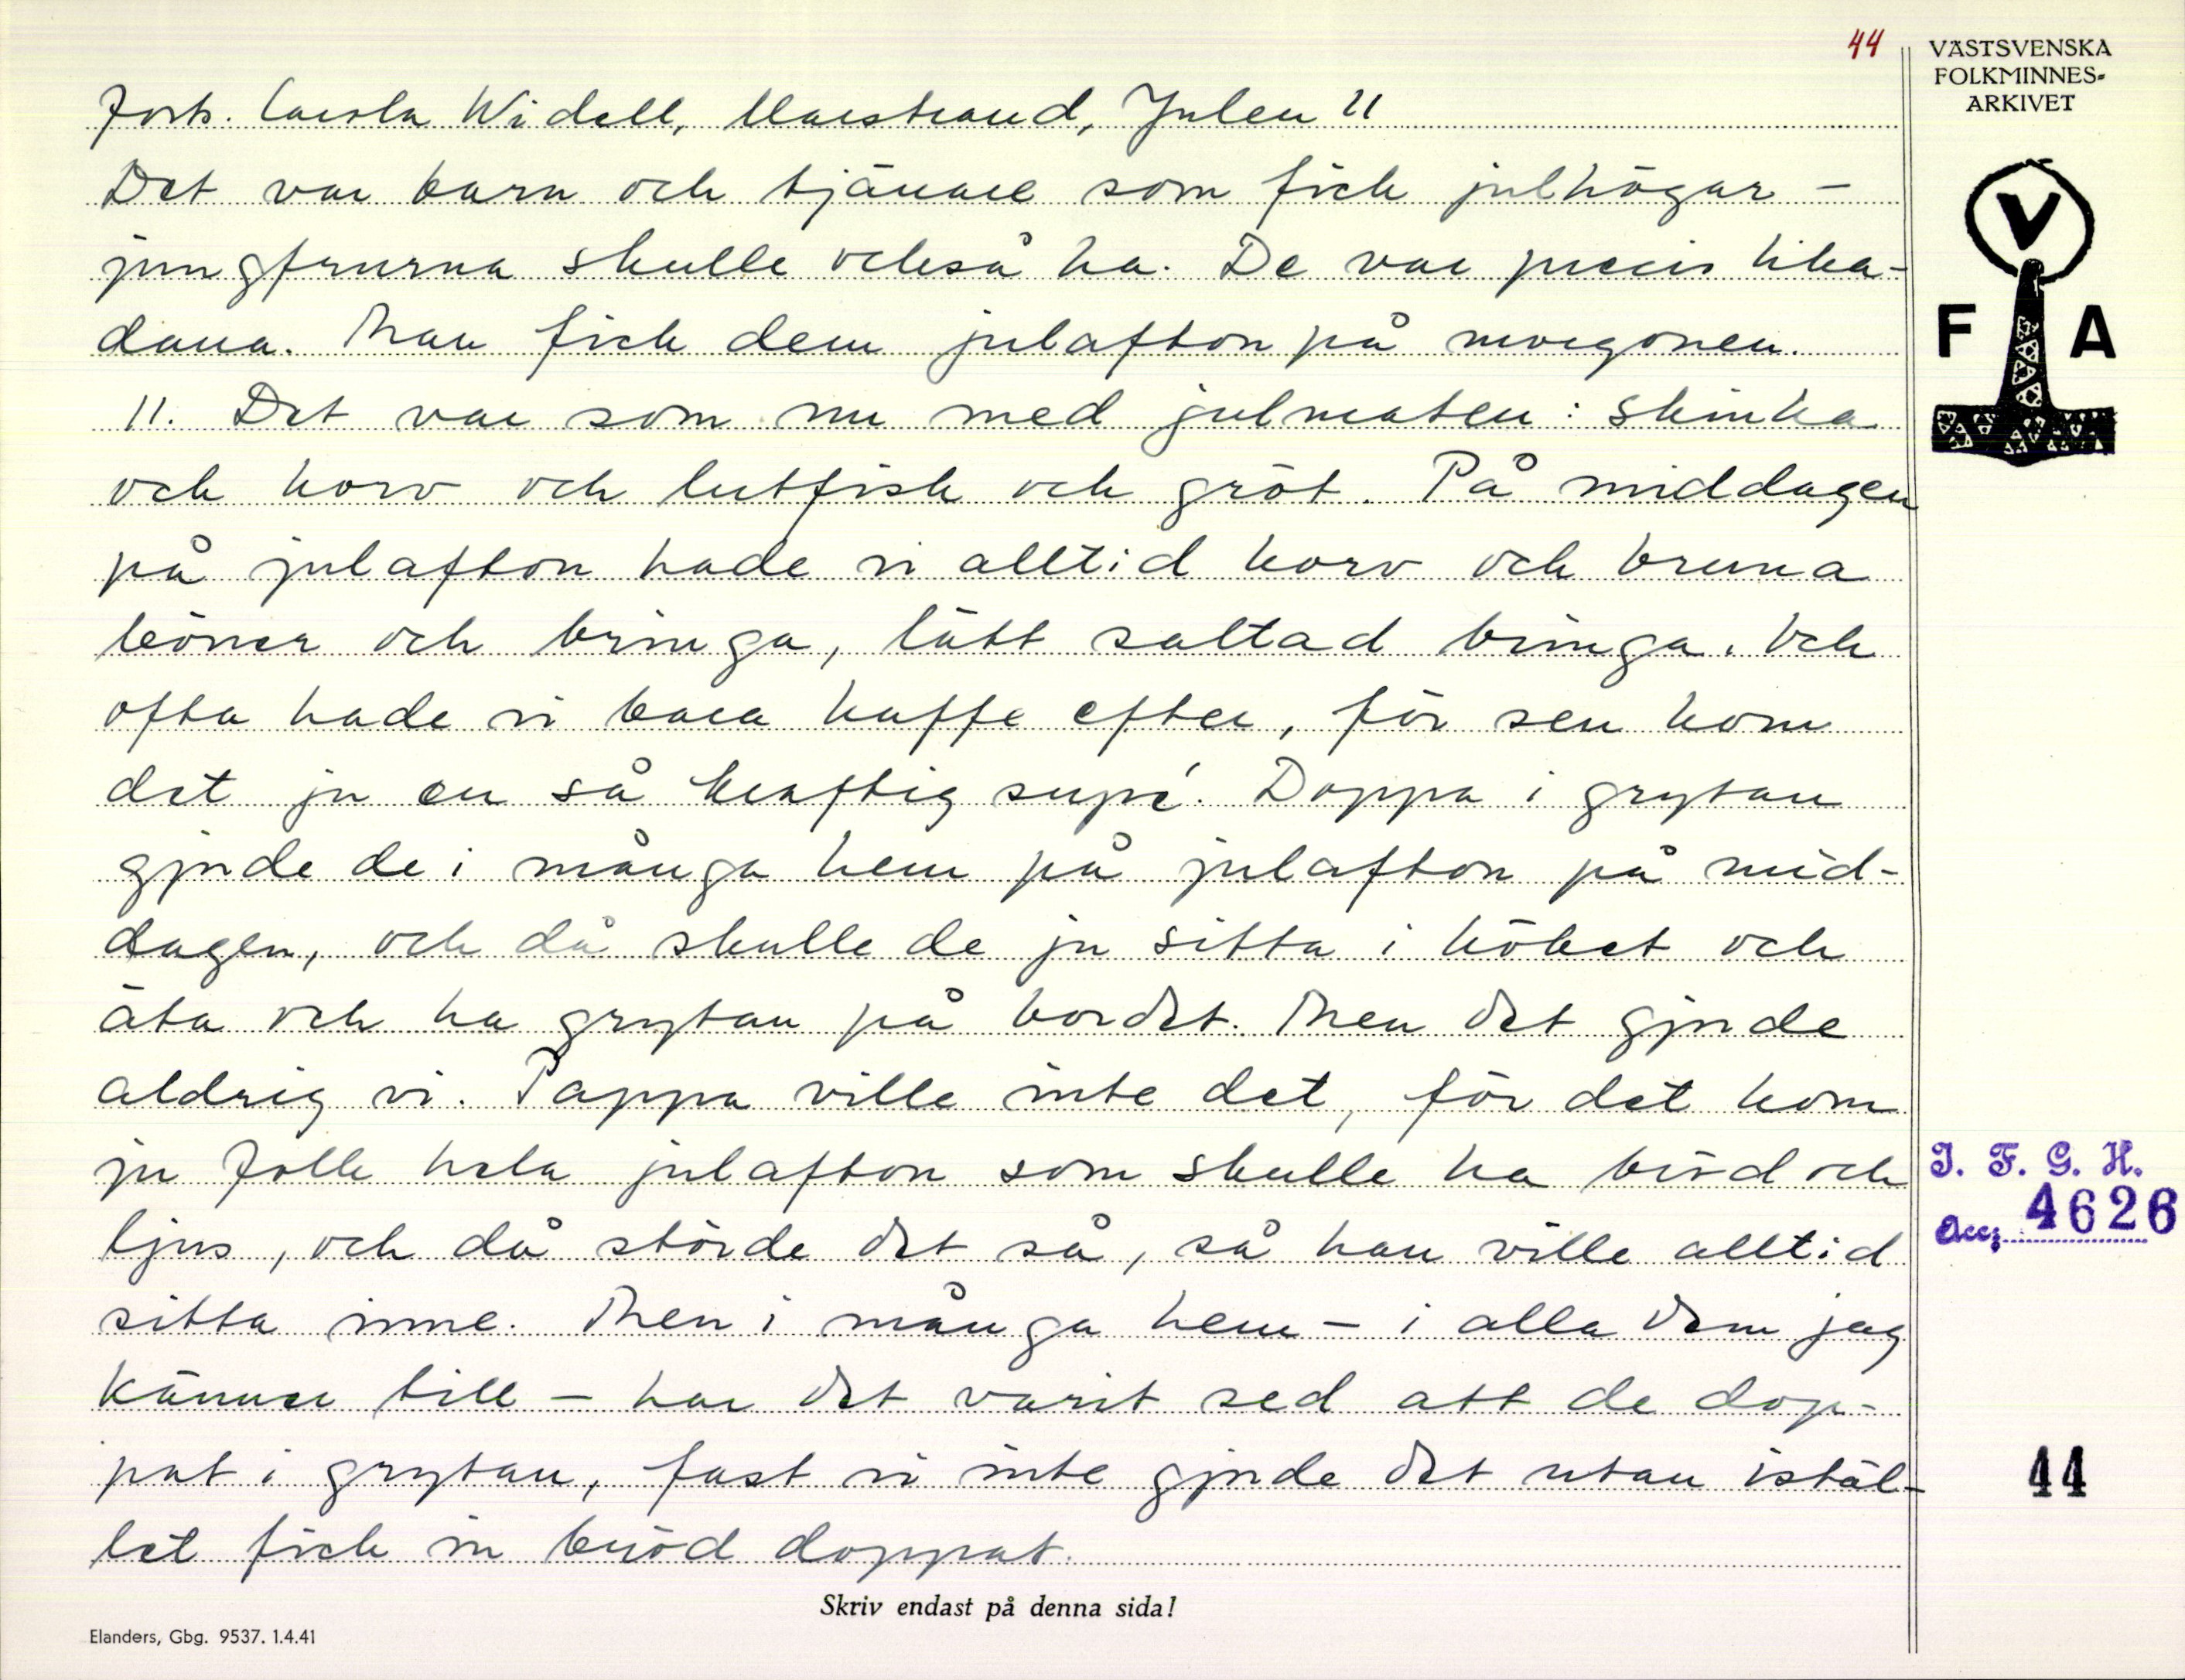 44
VÄSTSVENSKA
FOLKMINNES-
ARKIVET
V
F A
Forts. Carola Widell, Marstrand, Julen 11
Det var barn och tjänare som fick julhögar –
jungfrurna skulle också ha. De var precis lika-
dana. Man fick dem julafton på morgonen.
11. Det var som nu med julmaten: skinka
och korv och lutfisk och gröt. På middagen
på julafton hade vi alltid korv och bruna
bönor och bringa, lätt saltad bringa. Och
ofta hade vi bara kaffe efter, för sen kom
det ju en så kraftig supé. Doppa i grytan
gjorde de i många hem på julafton på mid-
dagen, och då skulle de ju sitta i köket och
äta och ha grytan på bordet. Men det gjorde
aldrig vi. Pappa ville inte det, för det kom
ju folk hela julafton som skulle ha bröd och
ljus, och då störde det så, så han ville alltid
sitta inne. Men i många hem – i alla dem jag
känner till – har det varit sed att de dop-
pat i grytan, fast vi inte gjorde det utan istäl-
let fick in bröd doppat.
I. F. G. H.
Acc: 4626
44
Skriv endast på denna sida!
Elanders, Gbg. 9537. 1.4.41